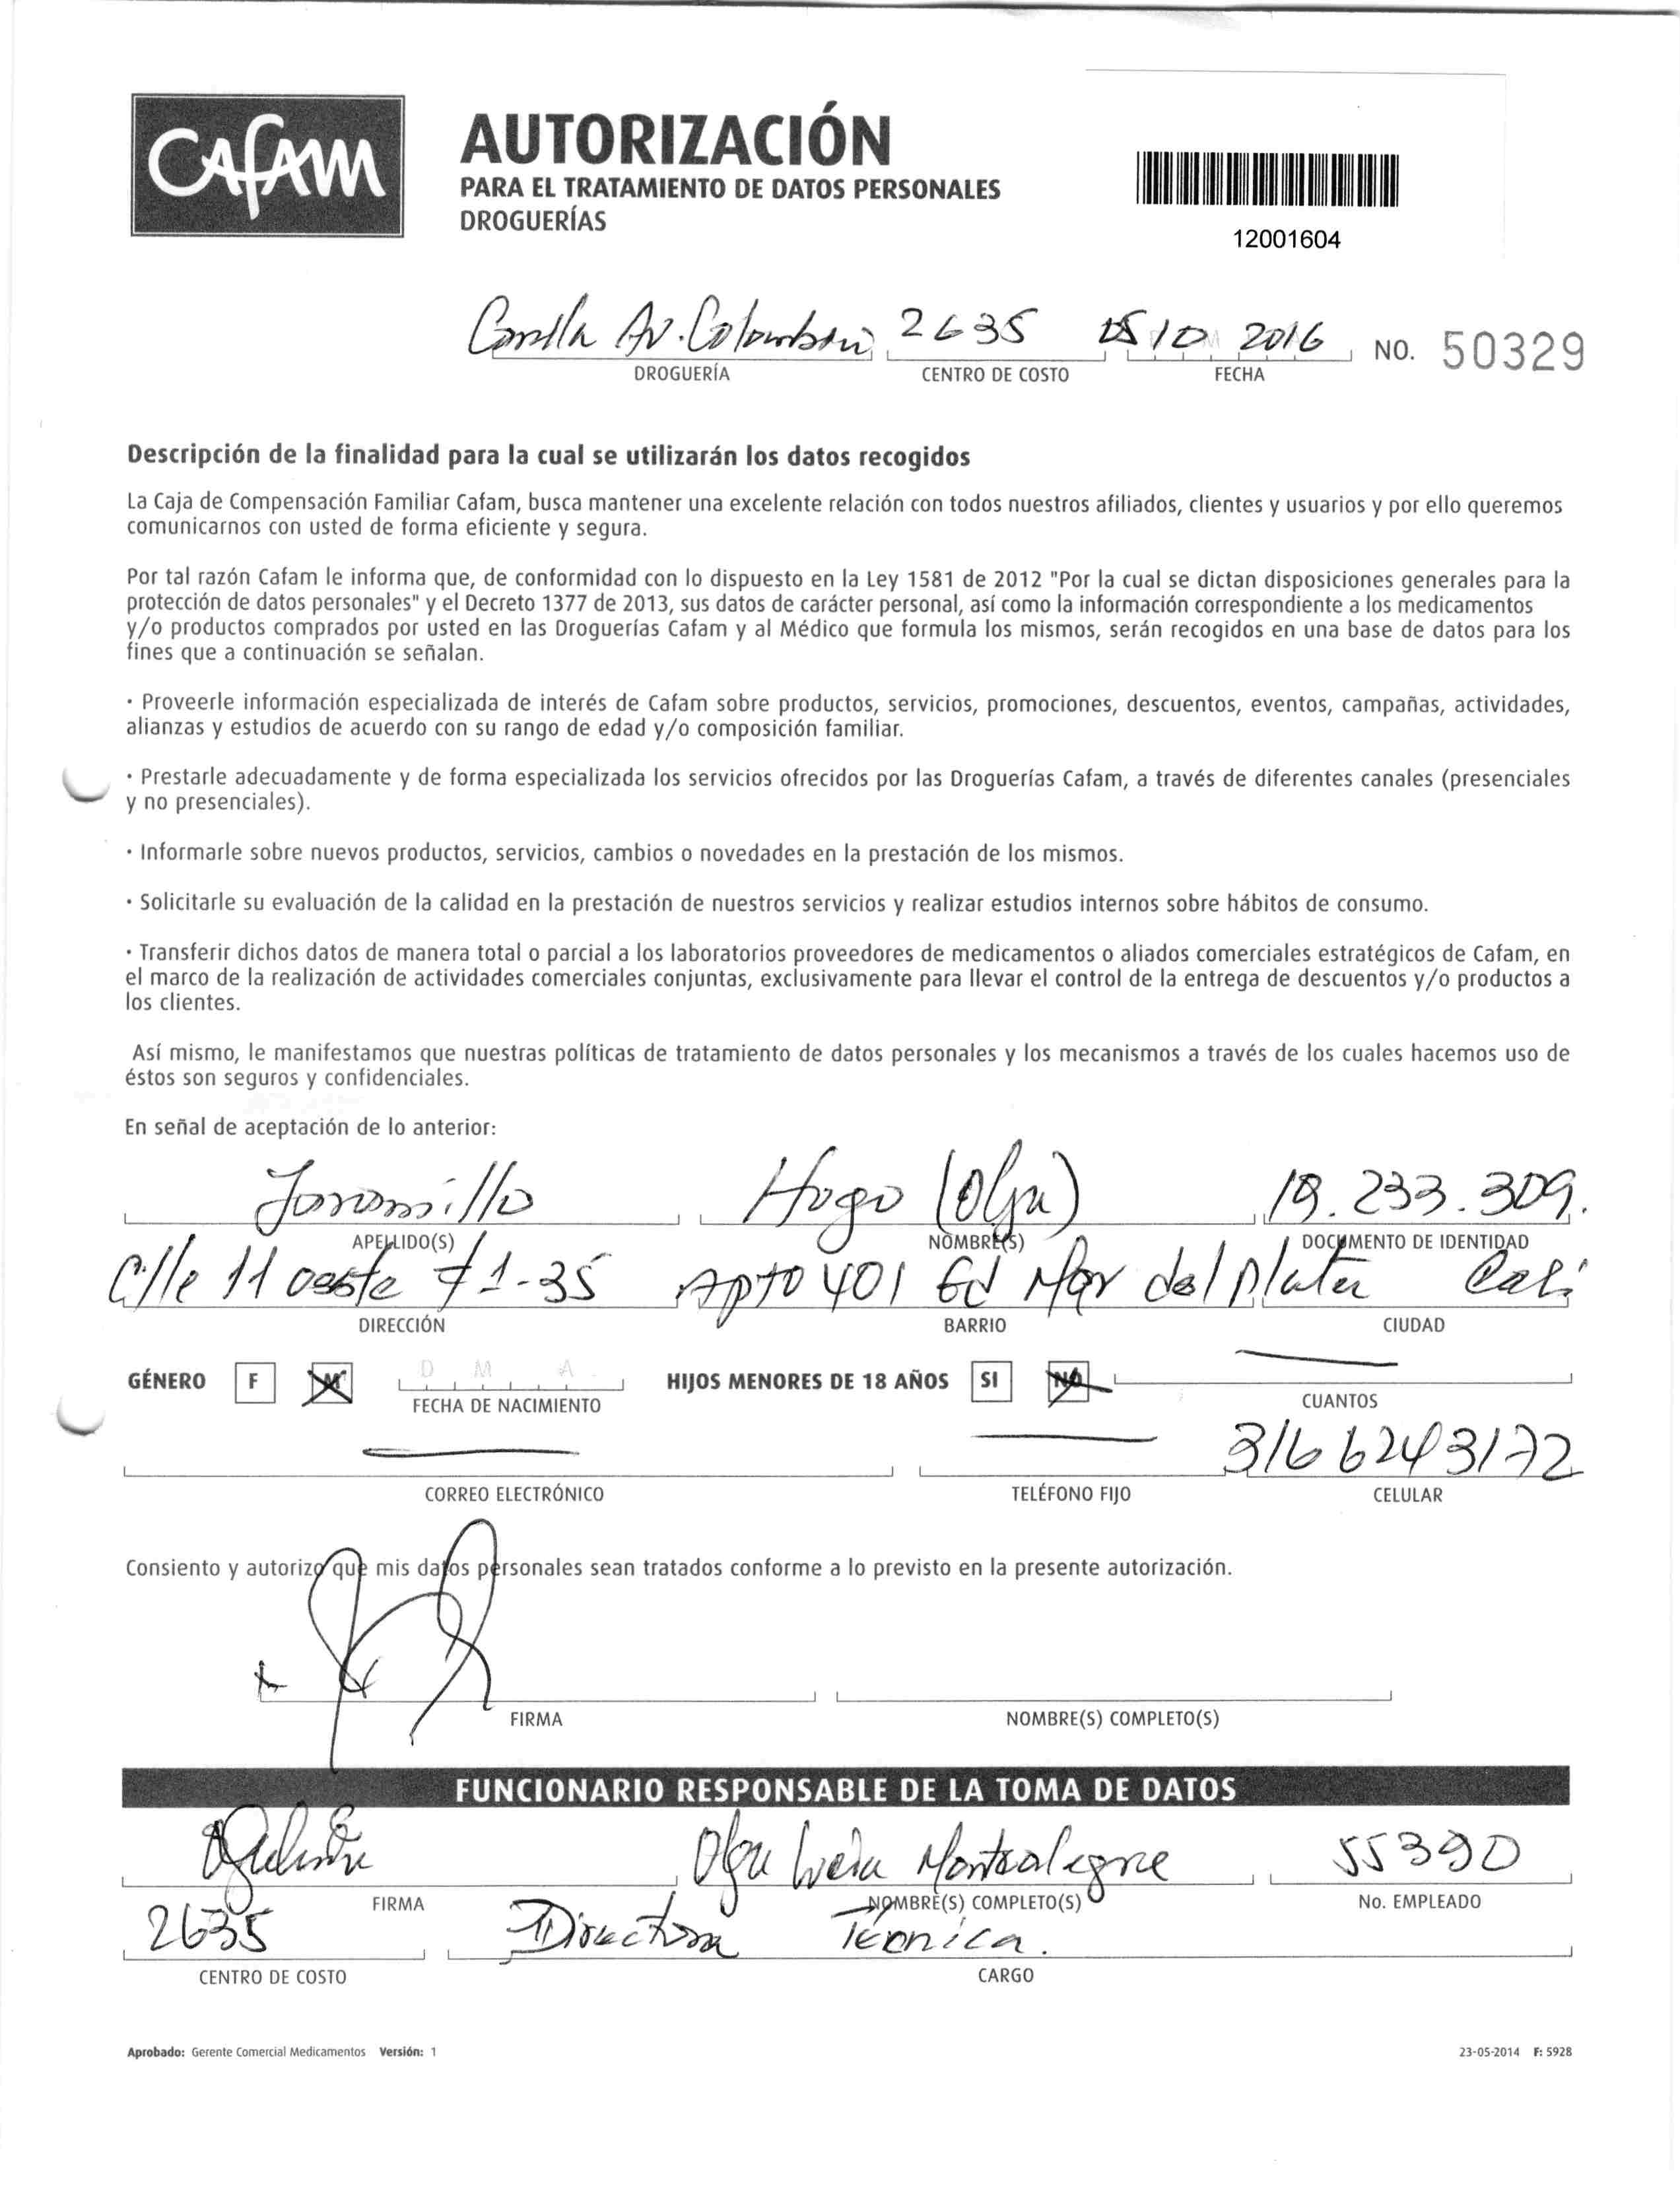 CAFAM
AUTORIZACIÓN
PARA EL TRATAMIENTO DE DATOS PERSONALES
DROGUERÍAS
12001604
Av. Colombia 2635 15 10 2016 NO. 50329
DROGUERÍA CENTRO DE COSTO FECHA
Descripción de la finalidad para la cual se utilizarán los datos recogidos
La Caja de Compensación Familiar Cafam, busca mantener una excelente relación con todos nuestros afiliados, clientes y usuarios y por ello queremos
comunicarnos con usted de forma eficiente y segura.
Por tal razón Cafam le informa que, de conformidad con lo dispuesto en la Ley 1581 de 2012 "Por la cual se dictan disposiciones generales para la
protección de datos personales" y el Decreto 1377 de 2013, sus datos de carácter personal, así como la información correspondiente a los medicamentos
y/o productos comprados por usted en las Droguerías Cafam y al Médico que formula los mismos, serán recogidos en una base de datos para los
fines que a continuación se señalan.
· Proveerle información especializada de interés de Cafam sobre productos, servicios, promociones, descuentos, eventos, campañas, actividades,
alianzas y estudios de acuerdo con su rango de edad y/o composición familiar.
· Prestarle adecuadamente y de forma especializada los servicios ofrecidos por las Droguerías Cafam, a través de diferentes canales (presenciales
y no presenciales).
· Informarle sobre nuevos productos, servicios, cambios o novedades en la prestación de los mismos.
· Solicitarle su evaluación de la calidad en la prestación de nuestros servicios y realizar estudios internos sobre hábitos de consumo.
· Transferir dichos datos de manera total o parcial a los laboratorios proveedores de medicamentos o aliados comerciales estratégicos de Cafam, en
el marco de la realización de actividades comerciales conjuntas, exclusivamente para llevar el control de la entrega de descuentos y/o productos a
los clientes.
Así mismo, le manifestamos que nuestras políticas de tratamiento de datos personales y los mecanismos a través de los cuales hacemos uso de
éstos son seguros y confidenciales.
En señal de aceptación de lo anterior:
Jaramillo Hugo (Olga) 19.233.309.
APELLIDO(S) NOMBRE(S) DOCUMENTO DE IDENTIDAD
C/lle 11 oeste # 1-35 Apto 401 Ed Mar del Plata Cali
DIRECCIÓN BARRIO CIUDAD
GÉNERO F M D M A HIJOS MENORES DE 18 AÑOS SI NO
FECHA DE NACIMIENTO CUANTOS
3166243172
CORREO ELECTRÓNICO TELÉFONO FIJO CELULAR
Consiento y autorizo que mis datos personales sean tratados conforme a lo previsto en la presente autorización.
FIRMA NOMBRE(S) COMPLETO(S)
FUNCIONARIO RESPONSABLE DE LA TOMA DE DATOS
Olga Lucia Montealegre 55390
FIRMA NOMBRE(S) COMPLETO(S) No. EMPLEADO
2635 Directora Técnica.
CENTRO DE COSTO CARGO
Aprobado: Gerente Comercial Medicamentos Versión: 1 23-05-2014 F: 5928